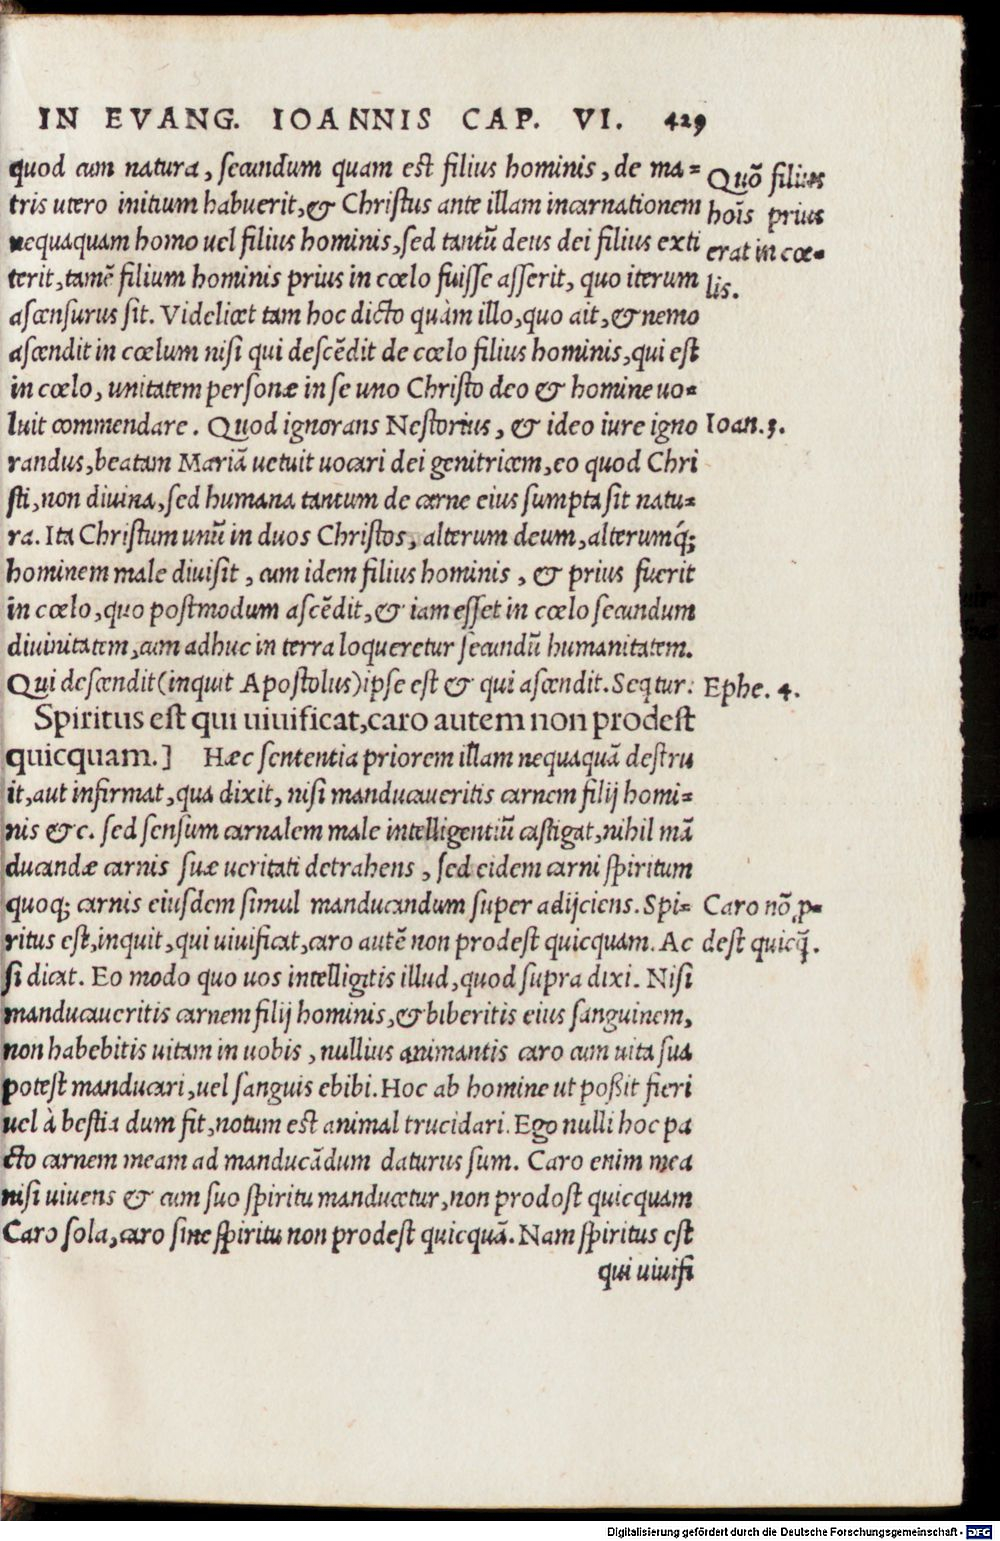 IN EVANG. IOANNIS CAP. VI. 429
quod cum natura, secundum quam est filius hominis, de ma-
tris utero initium habuerit, & Christus ante illam incarnationem
nequaquam homo uel filius hominis, sed tantũ deus dei filius exti
terit, tamẽ filium hominis prius in cœlo fuisse asserit, quo iterum
ascensurus sit. Videlicet tam hoc dicto quàm illo, quo ait, & nemo
ascendit in cœlum nisi qui descẽdit de cœlo filius hominis, qui est
in cœlo, unitatem personæ in se uno Christo deo & homine uo-
luit commendare. Quod ignorans Nestorius, & ideo iure igno
randus, beatam Mariã uetuit uocari dei genitricem, eo quod Chri
sti, non diuina, sed humana tantum de carne eius sumpta sit natu-
ra. Ita Christum unũ in duos Christos, alterum deum, alterumq́;
hominem male diuisit, cum idem filius hominis, & prius fuerit
in cœlo, quo postmodum ascẽdit, & iam esset in cœlo secundum
diuinitatem, cum adhuc in terra loqueretur secundũ humanitatem.
Qui descendit (inquit Apostolus) ipse est & qui ascendit. Seqtur:
Spiritus est qui uiuificat, caro autem non prodest
quicquam.] Hæc sententia priorem illam nequaquã destru
it, aut infirmat, qua dixit, nisi manducaueritis carnem filij homi-
nis &c. sed sensum carnalem male intelligentiũ castigat, nihil mã
ducandæ carnis suæ ueritati detrahens, sed eidem carni spiritum
quoq; carnis eiusdem simul manducandum super adijciens. Spi-
ritus est, inquit, qui uiuificat, caro autẽ non prodest quicquam. Ac
si dicat. Eo modo quo uos intelligitis illud, quod supra dixi. Nisi
manducaueritis carnem filij hominis, & biberitis eius sanguinem,
non habebitis uitam in uobis, nullius animantis caro cum uita sua
potest manducari, uel sanguis ebibi. Hoc ab homine ut poßit fieri
uel à bestia dum fit, notum est animal trucidari. Ego nulli hoc pa
cto carnem meam ad manducãdum daturus sum. Caro enim mea
nisi uiuens & cum suo spiritu manducetur, non prodost quicquam
Caro sola, caro sine spiritu non prodest quicquã. Nam spiritus est
qui uiuifi
Quõ filius
hoĩs prius
erat in cœ-
lis.
Ioan. 3.
Ephe. 4.
Caro nõ ꝓ-
dest quicq̃.
Digitalisierung gefördert durch die Deutsche Forschungsgemeinschaft - DFG